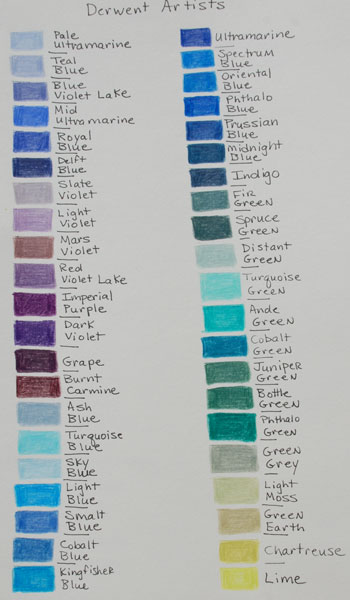 Derwent Artists
Pale
Ultramarine
Teal
Blue
Blue
Violet Lake
Mid
Ultramarine
Royal
Blue
Delft
Blue
Slate
Violet
Light
Violet
Mars
Violet
Red
Violet Lake
Imperial
Purple
Dark
Violet
Grape
Burnt
Carmine
Ash
Blue
Turquoise
Blue
Sky
Blue
Light
Blue
Smalt
Blue
Cobalt
Blue
Kingfisher
Blue
Ultramarine
Spectrum
Blue
Oriental
Blue
Phthalo
Blue
Prussian
Blue
Midnight
Blue
Indigo
Fir
Green
Spruce
Green
Distant
Green
Turquoise
Green
Ande
Green
Cobalt
Green
Juniper
Green
Bottle
Green
Phthalo
Green
Green
Grey
Light
Moss
Green
Earth
Chartreuse
Lime